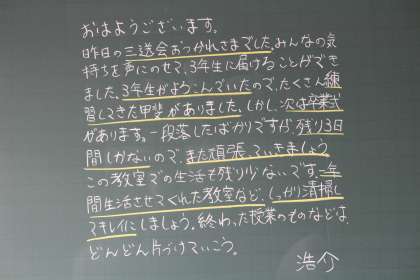 おはようございます。
昨日の三送会おつかれさまでした。みんなの気
持ちを声にのせて、3年生に届けることができ
ました。3年生がよろこんでいたので、たくさん練
習してきた甲斐がありました。しかし、次は卒業式
があります。一段落したばかりですが、残り3日
間しかないので、また頑張っていきましょう
この教室での生活も残り少ないです。一年
間生活させてくれた教室など、しっかり清掃し
てキレイにしましょう。終わった授業のものなどは、
どんどん片づけていこう。
浩介